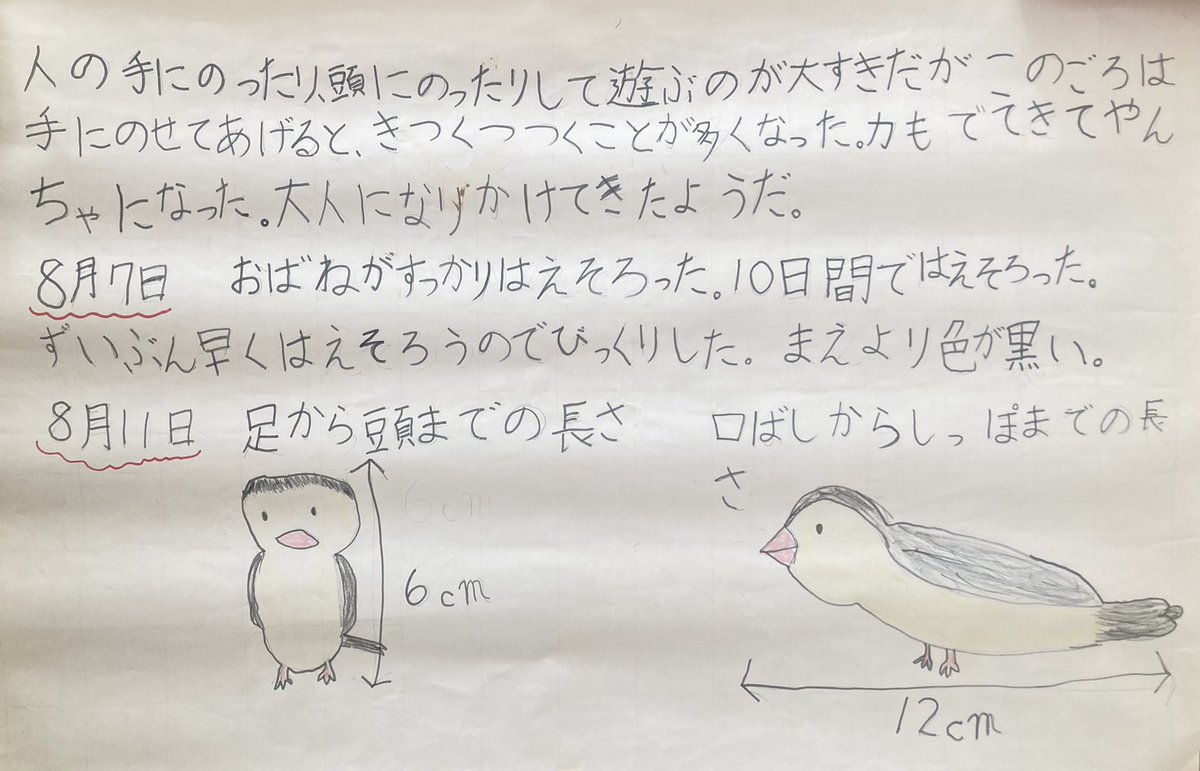 人の手にのったり、頭にのったりして遊ぶのが大すきだがこのごろは
手にのせてあげると、きつくつつくことが多くなった。力もでてきてやん
ちゃになった。大人になりかけてきたようだ。
8月7日 おばねがすっかりはえそろった。10日間ではえそろった。
ずいぶん早くはえそろうのでびっくりした。まえより色が黒い。
8月11日 足から頭までの長さ
口ばしからしっぽまでの長
さ
6cm
6cm
12cm